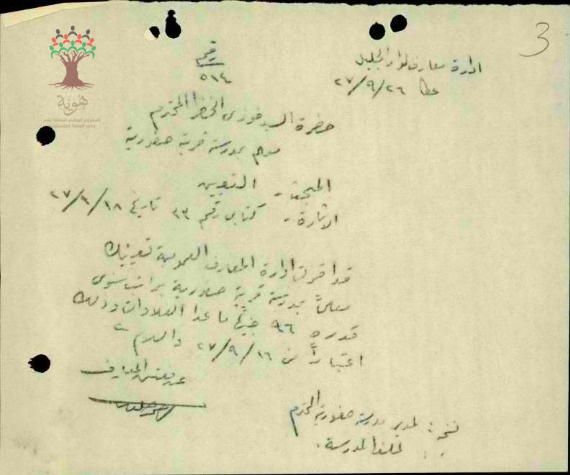 3
ادارة معارف لواء الجليل
عكا ٢٧/٩/٢٦
رقم
٥١٤
حضرة السيد فوزي الخضر المحترم
معلم مدرسة قرية صفورية
المبحث - التعيين
الاشارة - كتابي رقم ٢٣ تاريخ ٢٧/٩/١٨
قد اقرت ادارة المعارف العمومية تعيينك
معلماً بمدرسة قرية صفورية براتب سنوي
قدره ٩٦ جنيهاً ما عدا العلاوات وذلك
اعتباراً من ٢٧/٩/١٦ والسلام
عن مفتش المعارف
نسخة: لمدير مدرسة صفورية المحترم
لملف المدرسة.
هوية